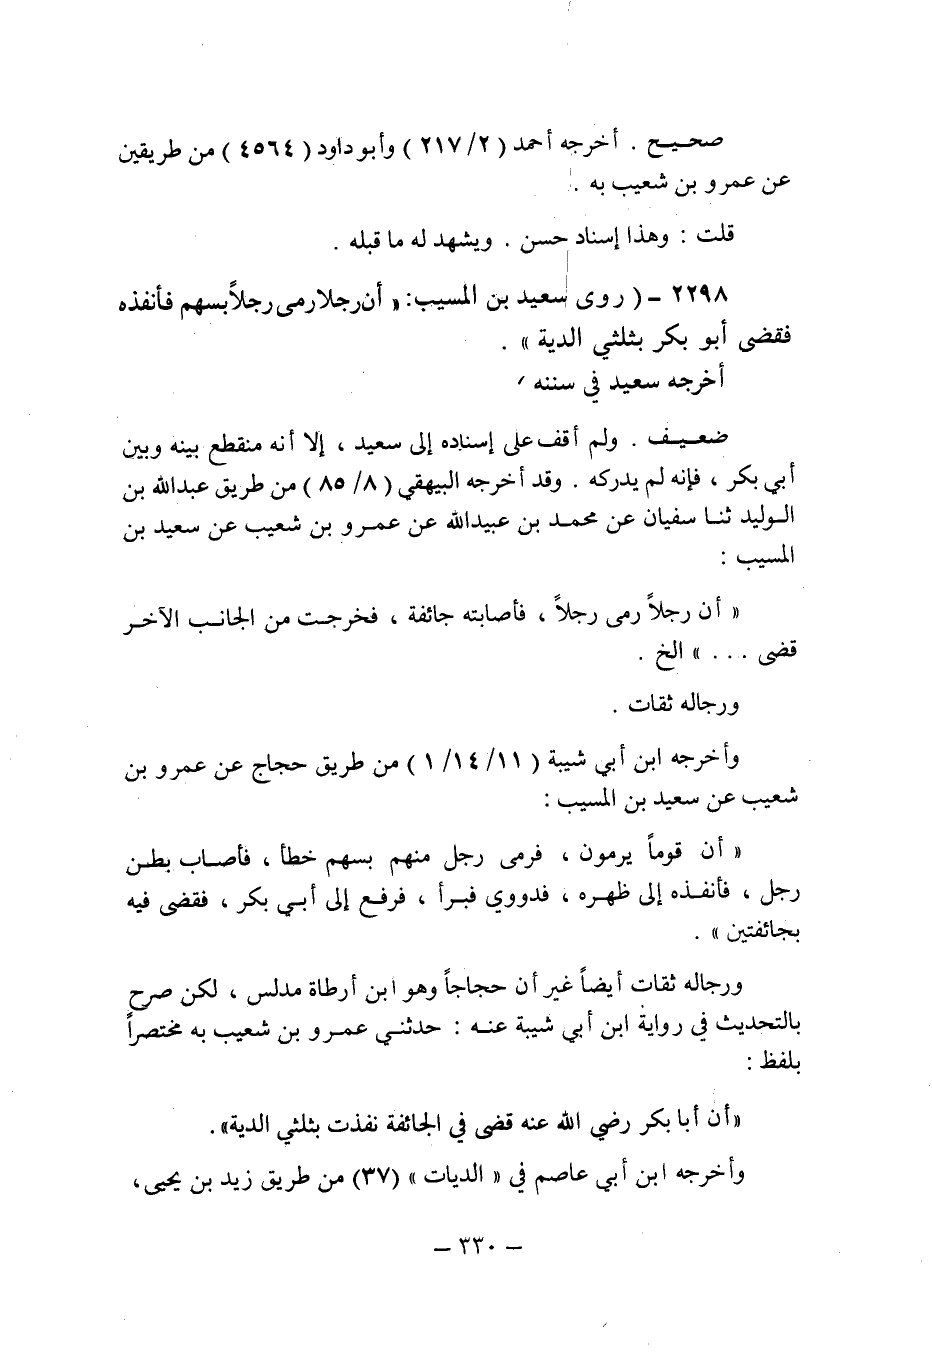 صحيح . أخرجه أحمد ( ٢/ ٢١٧ ) وأبو داود ( ٤٥٦٤ ) من طريقين
عن عمرو بن شعيب به .
قلت : وهذا إسناد حسن . ويشهد له ما قبله .
٢٢٩٨ - ( روى سعيد بن المسيب: « أن رجلا رمى رجلاً بسهم فأنفذه
فقضى أبو بكر بثلثي الدية » .
أخرجه سعيد في سننه
ضعيف . ولم أقف على إسناده إلى سعيد ، إلا أنه منقطع بينه وبين
أبي بكر ، فإنه لم يدركه . وقد أخرجه البيهقي ( ٨/ ٨٥ ) من طريق عبدالله بن
الوليد ثنا سفيان عن محمد بن عبيدالله عن عمرو بن شعيب عن سعيد بن
المسيب :
« أن رجلاً رمى رجلاً ، فأصابته جائفة ، فخرجت من الجانب الآخر
قضى . . . » الخ .
ورجاله ثقات .
وأخرجه ابن أبي شيبة ( ١١/ ١٤/ ١ ) من طريق حجاج عن عمرو بن
شعيب عن سعيد بن المسيب :
« أن قوماً يرمون ، فرمى رجل منهم بسهم خطأ ، فأصاب بطن
رجل ، فأنفذه إلى ظهره ، فدووي فبرأ ، فرفع إلى أبي بكر ، فقضى فيه
بجائفتين » .
ورجاله ثقات أيضاً غير أن حجاجاً وهو ابن أرطاة مدلس ، لكن صرح
بالتحديث في رواية ابن أبي شيبة عنه : حدثني عمرو بن شعيب به مختصراً
بلفظ :
«أن أبا بكر رضي الله عنه قضى في الجائفة نفذت بثلثي الدية».
وأخرجه ابن أبي عاصم في « الديات » (٣٧) من طريق زيد بن يحيى،
- ٣٣٠ -